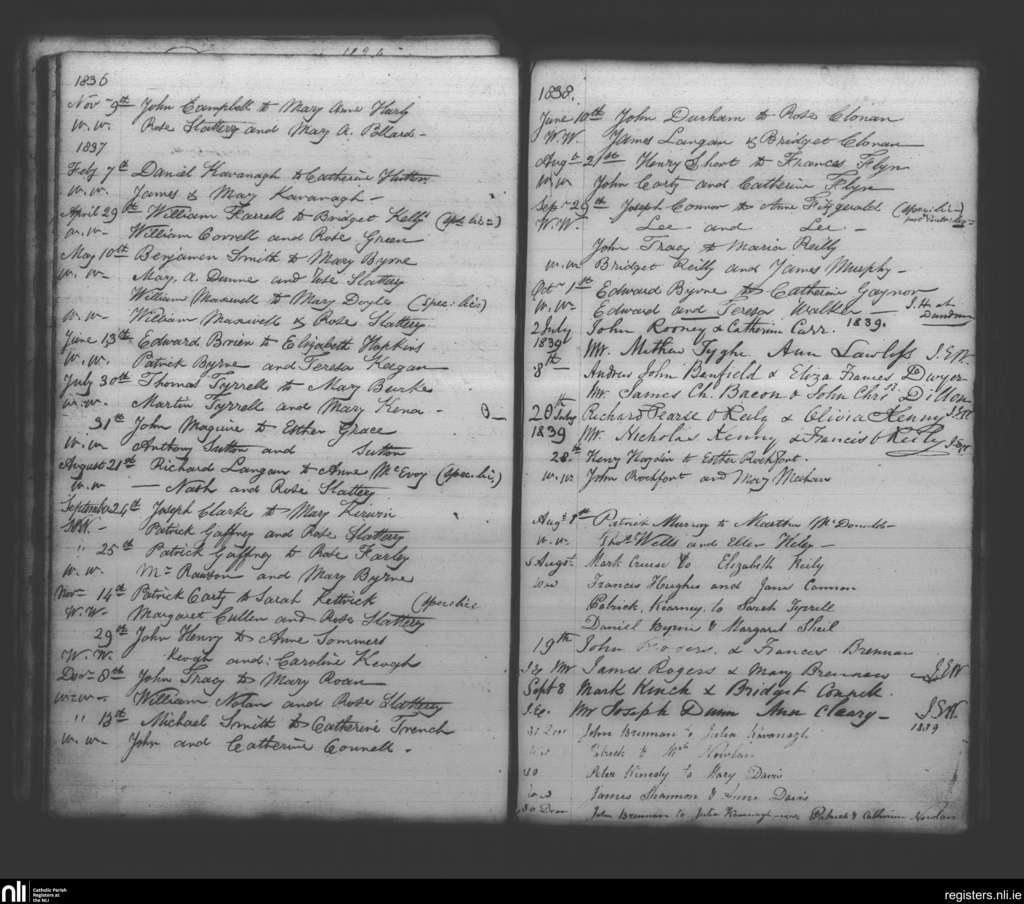 1836
Nov 9th John Campbell to Mary Anne Hurly
W. W. Rose Slattery and Mary A. Pollard -
1837
Feby 7th Daniel Kavanagh to Catherine Hutton
W. W. James & Mary Kavanagh -
April 29th William Farrell to Bridget Kelly (spec. lic=)
W. W. William Correll and Rose Green
May 10th Benjamen Smith to Mary Byrne
W. W. Mary. A. Dunne and Slattery
William Maxwell to Mary Doyle (spec: lic;)
W. W. William Maxwell & Rose Slattery
June 13th Edward Brein to Elizabeth Hopkins
W. W. Patrick Byrne and Teresa Keegan
July 30th Thomas Tyrrell to Mary Burke
W. W. Martin Tyrrell and Mary Kena - B-
31th John Maguire to Esther Grace
W. W. Anthony Sutton and Sutton
August 21th Richard Langan to Anne McEvoy (spec. lic;)
W. W - Nash and Rose Slattery
September 24th Joseph Clarke to Mary Kirwin
W. Patrick Gaffney and Rose Slattery
" 25th Patrick Gaffney to Rose Farley
W. W. Mr Rawson and Mary Byrne
Nov 14th Patrick Carty to Sarah Kettrick (spec: lic
W. W. Margaret Cullen and Rose Slattery
29th John Henry to Anne Sommers
W. W. Keogh and: Caroline Keogh
Decr 8th John Tracy to Mary Roan
W. W. William Nolan and Rose Slattery
" 13th Michael Smith to Catherine Trench
W. W. John and Catherine Connell -
1838.
June 10th John Durham to Rose Clonan
W. W. James Langan & Bridget Clonan
Augt 21st Henry Short to Frances Flyn
W. W. John Carty and Catherine Flyn
Sep 26th Joseph Connor to Anne Fitzgerald (spec: lic=)
W. W. Lee and Lee -
John Tracy to Maria Reilly
W. W. Bridget Reilly and James Murphy -
Oct 1st Edward Byrne to Catherine Gaynor
W. W. Edward and Teresa Walker - J. H. at Dundrum
2 July John Rooney & Catherine Carr. 1839.
1839 Wit. Mathew Tyghe. Ann Lawless J. E W
8th - Andrew John Banfield & Eliza Frances Dwyer
Wit. James Ch. Bacon & John Chrisr Dillon
20th July Richard Pearse O Reily & Olivia Kenny J. E W
1839 Wit. Nicholas Kenny & Francis O Reily J. E W
28th Henry to Esther Rochfort.
W. W. John Rochfort and Mary Meehan
Augt 1st Patrick Murray to Martha McDonald -
W. W. Wells and Ellen Hiley -
5 Augt. Mark Cruise to Elizabeth Reily
W W Francis Hughes and Jane Cannon
Patrick Kearney to Sarah Tyrrell
Daniel Byrne & Margaret Sheil
19th John Rogers. & Frances Brennan
Wit James Rogers & Mary Brennan J E W
Sept 8 Mark Kinch & Bridget
J. E. Wit Joseph Dunn Ann Cleary - J. E W.
1839
John Brennan to Julia Kavanagh
Patrick & Nowlan
30 Peter Kenedy to Mary Davis
W W James Shannon & Anne Davis
30 John Brennan to Julia Kavanagh Patrick & Catherine Nowlan
nli
Catholic Parish
Registers at
the NLI
registers.nli.ie